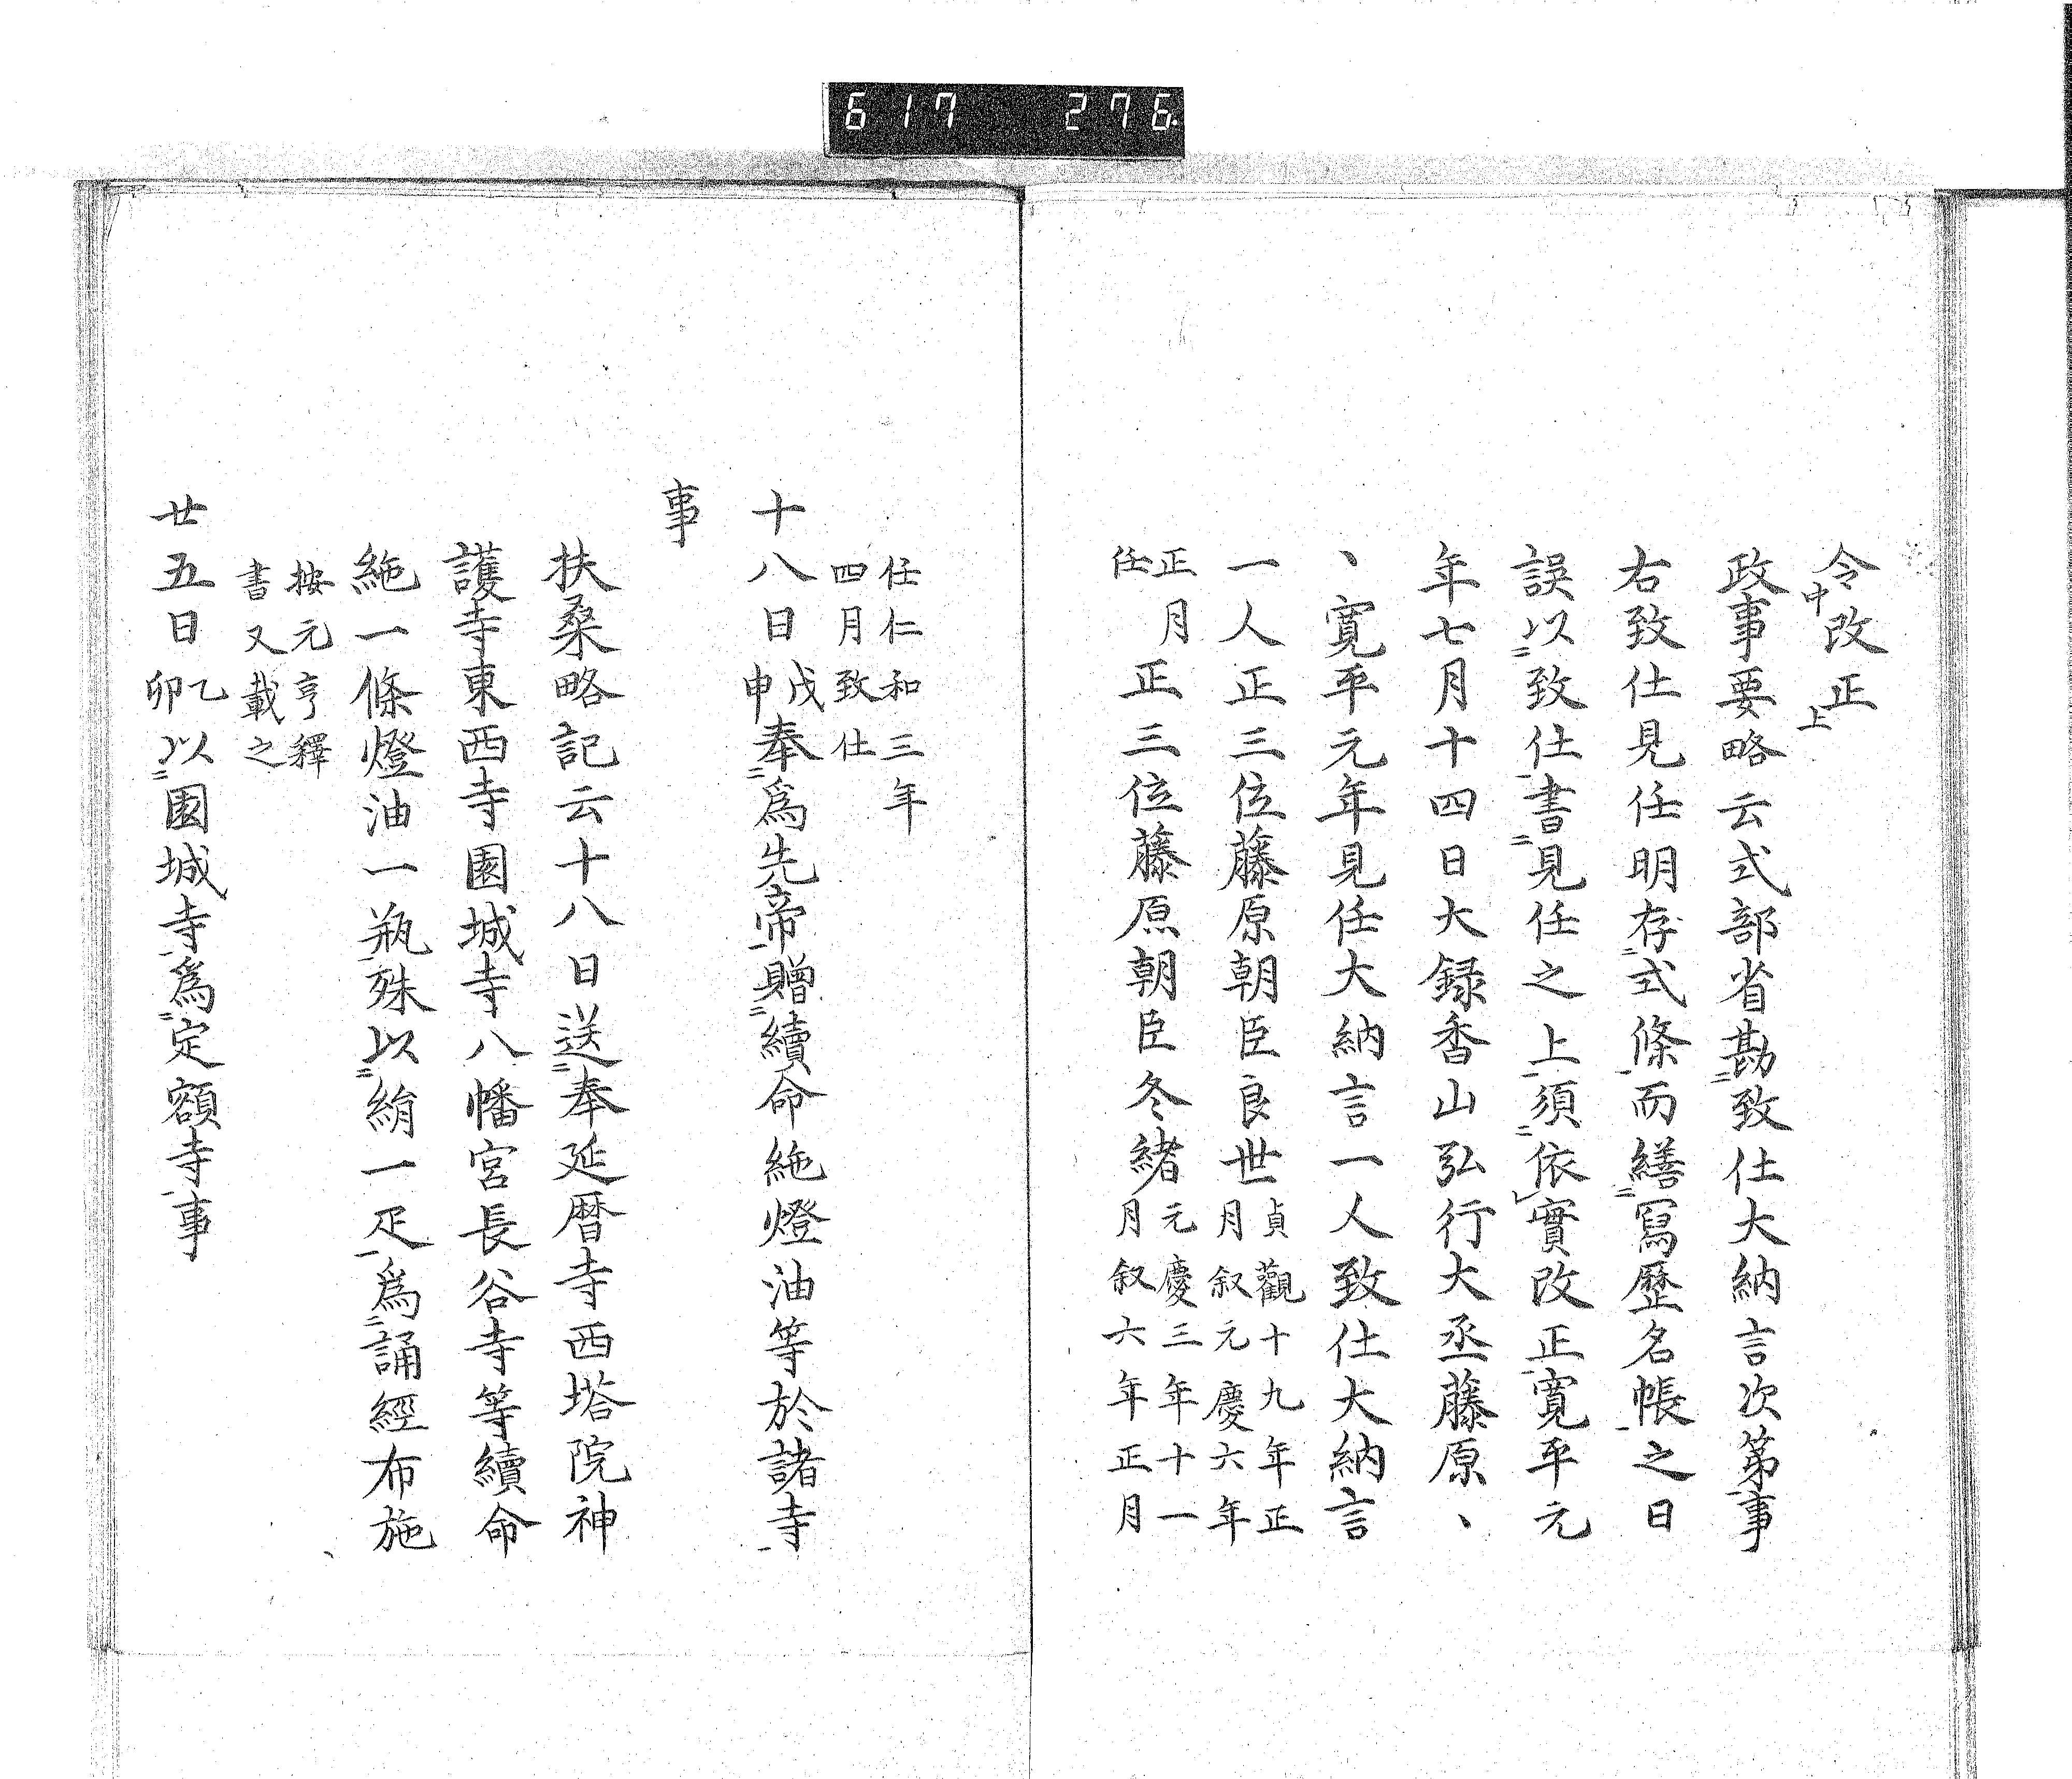 617 276
令中改正上
政事要略云式部省勘致仕大納言次第事
右致仕見任明存式條而繕寫歷名帳之日
誤以致仕書見任之上須依實改正寛平元
年七月十四日大録香山弘行大丞藤原、
、寛平元年見任大納言一人致仕大納言
一人正三位藤原朝臣良世貞觀十九年正月叙元慶六年
正月任正三位藤原朝臣冬緒元慶三年十一月叙六年正月
任仁和三年四月致仕
十八日戊申奉爲先帝贈續命絁燈油等於諸寺
事
扶桑略記云十八日送奉延暦寺西塔院神
護寺東西寺園城寺八幡宮長谷寺等續命
絁一條燈油一瓶殊以絹一疋爲誦經布施
按元亨釋書又載之
廿五日乙卯以園城寺爲定額寺事